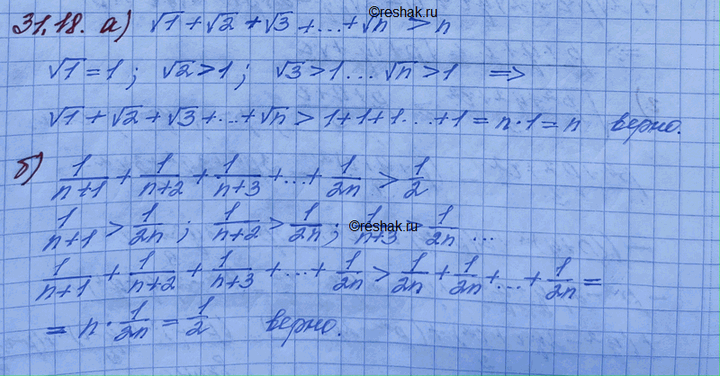 ©reshak.ru
31.18. а) √1 + √2 + √3 + ... + √n > n
√1 = 1; √2 > 1; √3 > 1 ... √n > 1 ⇒
√1 + √2 + √3 + ... + √n > 1 + 1 + 1 ... + 1 = n · 1 = n верно.
б) 1/(n+1) + 1/(n+2) + 1/(n+3) + ... + 1/2n > 1/2
1/(n+1) > 1/2n; 1/(n+2) > 1/2n; 1/(n+3) > 1/2n ...
©reshak.ru
1/(n+1) + 1/(n+2) + 1/(n+3) + ... + 1/2n > 1/2n + 1/2n + ... + 1/2n =
= n · 1/2n = 1/2 верно.